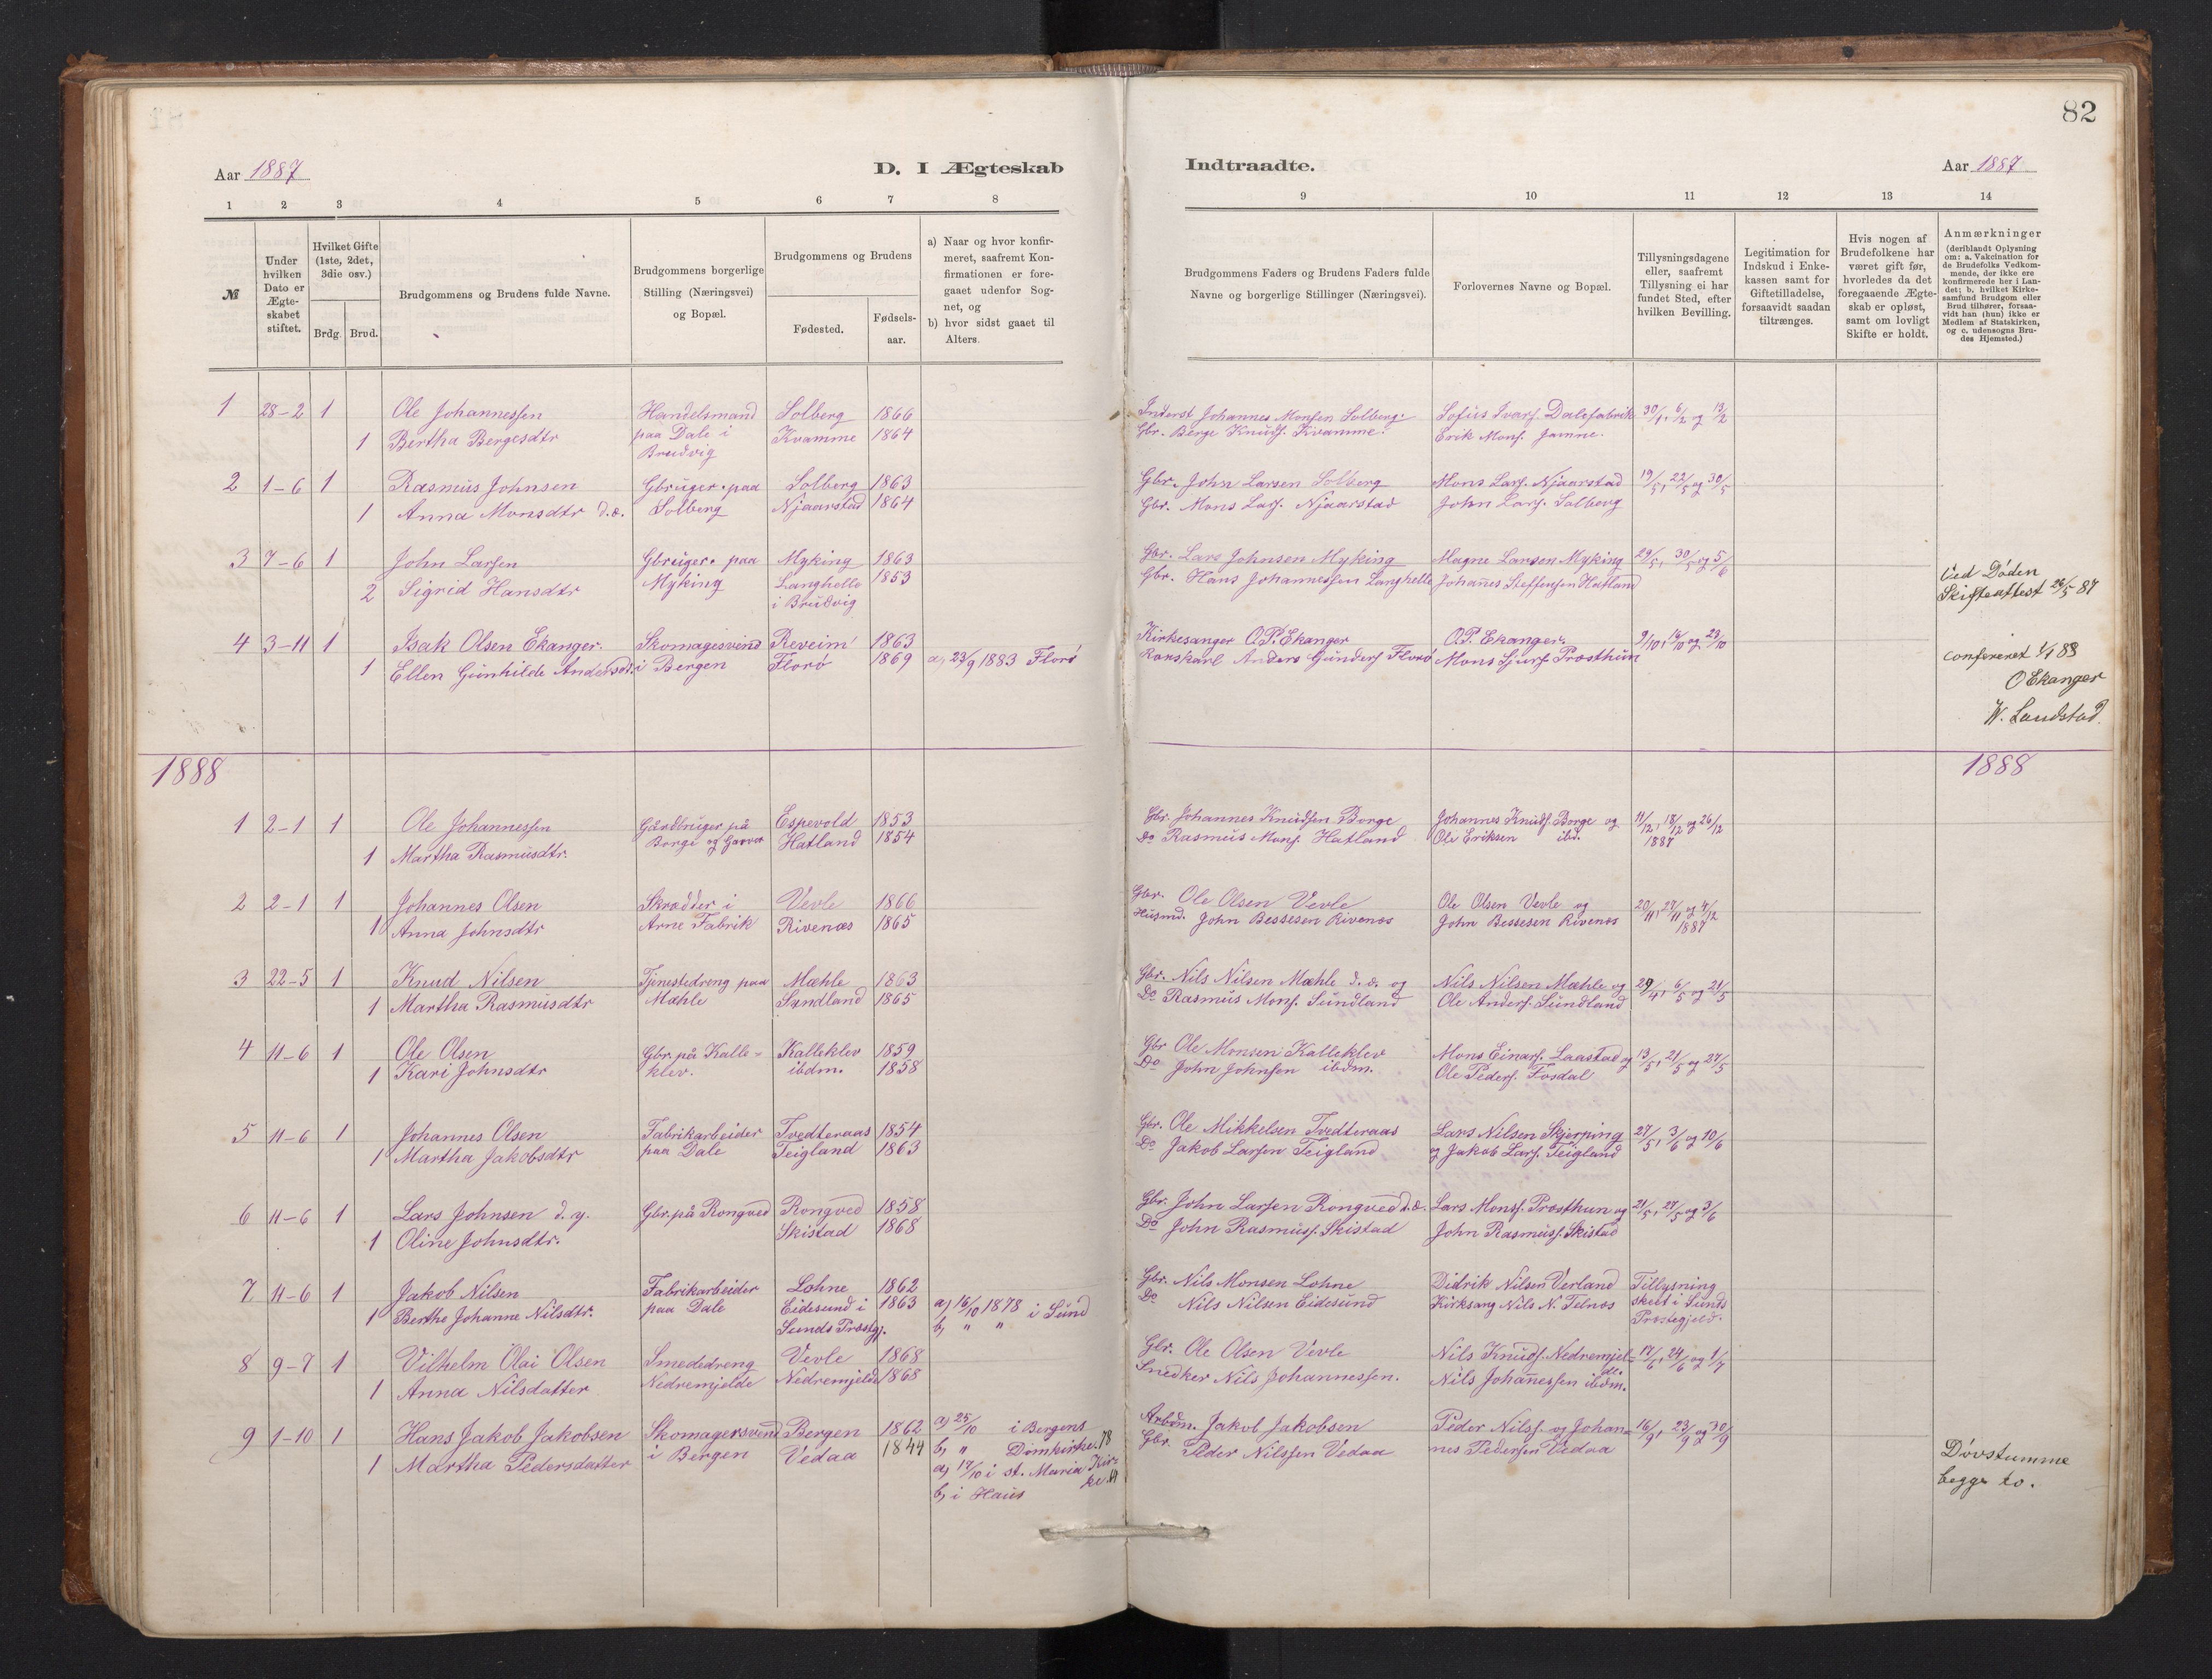 82
Aar 1887
D. I Ægteskab
Indtraadte.
Aar 1887
1 2 3 4 5 6 7 8
9 10 11 12 13 14
№
Under hvilken Dato er Ægte-skabet stiftet.
Hvilket Gifte (1ste, 2det, 3die osv.)
Brdg. Brud.
Brudgommens og Brudens fulde Navne.
Brudgommens borgerlige Stilling (Næringsvei) og Bopæl.
Brudgommens og Brudens
Fødested.
Fødsels-aar.
a) Naar og hvor konfir-meret, saafremt Kon-firmationen er fore-gaaet udenfor Sog-net, og
b) hvor sidst gaaet til Alters.
Brudgommens Faders og Brudens Faders fulde Navne og borgerlige Stillinger (Næringsvei).
Forlovernes Navne og Bopæl.
Tillysningsdagene eller, saafremt Tillysning ei har fundet Sted, efter hvilken Bevilling.
Legitimation for Indskud i Enke-kassen samt for Giftetilladelse, forsaavidt saadan tiltrænges.
Hvis nogen af Brudefolkene har været gift før, hvorledes da det foregaaende Ægte-skab er opløst, samt om lovligt Skifte er holdt.
Anmærkninger (deriblandt Oplysning om: a. Vakcination for de Brudefolks Vedkom-mende, der ikke ere konfirmerede her i Lan-det; b. hvilket Kirke-samfund Brudgom eller Brud tilhører, forsaa-vidt han (hun) ikke er Medlem af Statskirken, og c. udensogns Bru-des Hjemsted.)
1 28-2 1 Ole Johannessen Handelsmand Solberg 1866 Inderst Johannes Monsen Solberg. Sofus Ivars. Dalefabrik 30/1, 6/2 og 13/2
1 Bertha Bergesdtr paa Dale i Kvamme 1864 Gbr. Berge Knuds. Kvamme. Erik Mons. Jamne.
Brudvig
2 1-6 1 Rasmus Johnsen Gbruger paa Solberg 1863 Gbr. John Larsen Solberg Mons Lars. Njaarstad 19/5, 22/5 og 30/5
1 Anna Monsdtr d.æ. Solberg Njaarstad 1864 Gbr. Mons Lars. Njaarstad John Lars. Solberg
3 7-6 1 John Larsen Gbruger paa Myking 1863 Gbr. Lars Johnsen Myking Magne Larsen Myking 29/5, 30/5 og 5/6
2 Sigrid Hansdtr Myking Langhelle 1853 Gbr. Hans Johannessen Langhelle Johannes Steffensen Hatland Ved Døden
i Brudvig Skifteattest 26/5 87
4 3-11 1 Isak Olsen Ekanger. Skomagesvend Reveim 1863 Kirkesanger O.P. Ekanger O.P. Ekanger. 9/10, 16/10 og 23/10
1 Ellen Gunhilde Andersdtr. i Bergen Florø 1869 a, 23/9 1883 Florø Anders Gunders. Florø Mons Sjurs. Prosthun confereret 1/1 88
O Ekanger
W. Landstad.
1888
1888
1 2-1 1 Ole Johannessen Gårdbruger på Espevold 1853 Gbr. Johannes Knudsen Borge Johannes Knuds. Borge og 11/12, 18/12 og 26/12
1 Martha Rasmusdtr. Borge og Hatland 1854 Do Rasmus Mons. Hatland Ole Eriksen ibd. 1887
2 2-1 1 Johannes Olsen Skrædder i Vevle 1866 Gbr. Ole Olsen Vevle Ole Olsen Vevle og 20/11, 27/11 og 4/12
1 Anna Johnsdtr Arne Fabrik Rivenæs 1865 Husmd. John Bessesen Rivenæs John Bessesen Rivenæs 1887
3 22-5 1 Knud Nilsen Tjenestedreng paa Mæhle 1863 Gbr. Nils Nilsen Mæhle d.æ. og Nils Nilsen Mæhle og 29/4, 6/5 og 21/5
1 Martha Rasmusdtr Mæhle Sundland 1865 Do Rasmus Mons. Sundland Ole Anders. Sundland
4 11-6 1 Ole Olsen Gbr. på Kalle- Kalleklev 1859 Gbr Ole Monsen Kalleklev Mons Einars. Laastad og 13/5, 21/5 og 27/5
1 Kari Johnsdtr klev. ibdm. 1858 Do John Johnsen ibdm. Ole Peders. Fosdal
5 11-6 1 Johannes Olsen Fabrikarbeider Tvedteraas 1854 Gbr. Ole Mikkelsen Tvedteraas Lars Nilsen Skjerping 27/5, 3/6 og 10/6
1 Martha Jakobsdtr paa Dale Teigland 1863 Do Jakob Larsen Teigland og Jakob Lars. Teigland
6 11-6 1 Lars Johnsen d.y. Gbr. på Rongved Rongved 1858 Gbr. John Larsen Rongved d.æ. Lars Monss. Prosthun og 21/5, 27/5 og 3/6
1 Oline Johnsdtr. Skistad 1868 Do John Rasmuss. Skistad John Rasmuss. Skistad
7 11-6 1 Jakob Nilsen Fabrikarbeider Lohne 1862 Gbr. Nils Monsen Lohne Didrik Nilsen Verland Tillysning
1 Berthe Johanne Nilsdtr. paa Dale Eidesund i 1863 a, 16/10 1878 i Sund Do Nils Nilsen Eidesund Kirksang Nils N. Telnæs skeet i Sunds
Sunds Præstgj. b, " " Præstegjeld.
8 9-7 1 Vilhelm Olai Olsen Smededreng Vevle 1868 Gbr. Ole Olsen Vevle Nils Knuds. Nedremjel- 17/6, 24/6 og 1/7
de.
1 Anna Nilsdatter Nedremjelde Nedremjelde 1868 Snedker Nils Johannessen. Nils Johannessen ibdm.
9 1-10 1 Hans Jakob Jakobsen Skomagersvend Bergen 1862 a, 25/10 i Bergens Arbdm. Jakob Jakobsen Peder Nilss. og Johan- 16/9, 23/9 og 30/9
1 Martha Pedersdatter i Bergen Vedaa 1844 b, " Domkirke. 78 Gbr. Peder Nilssen Vedaa nes Pedersen Vedaa Døvstumme
a, 17/10 i st. Maria Kir- begge to.
b, i Haus ke.